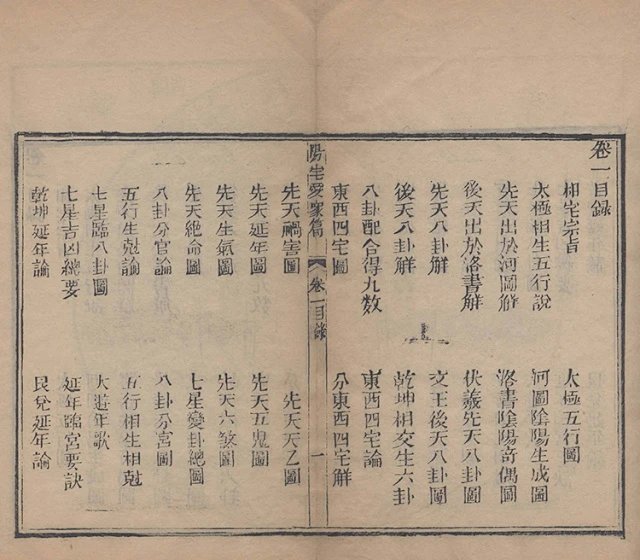 卷一目錄
相宅宗旨
太極五行圖
太極相生五行說
河圖陰陽生成圖
先天出於河圖解
洛書陰陽奇偶圖
後天出於洛書解
伏羲先天八卦圖
先天八卦解
文王後天八卦圖
後天八卦解
乾坤相交生六卦
八卦配合得九数
東西四宅論
東西四宅圖
分東西四宅解
陽宅愛眾篇
卷一目錄
一
先天禍害圖
先天天乙圖
先天延年圖
先天五鬼圖
先天生氣圖
先天六煞圖
先天絶命圖
七星變卦總圖
八卦分官論
八卦分宫圖
五行生尅論
五行相生相尅
七星臨八卦圖
大遊年歌
七星吉凶總要
延年臨宫要訣
乾坤延年論
艮兌延年論